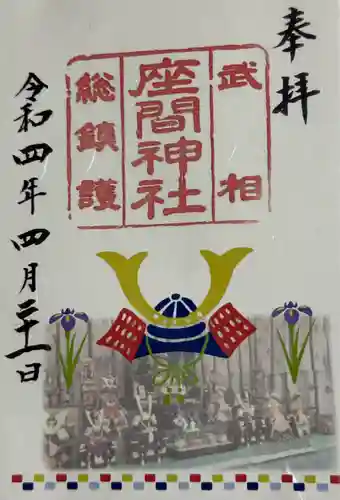 奉拝
武相
座間神社
総鎮護
令和四年四月二十一日